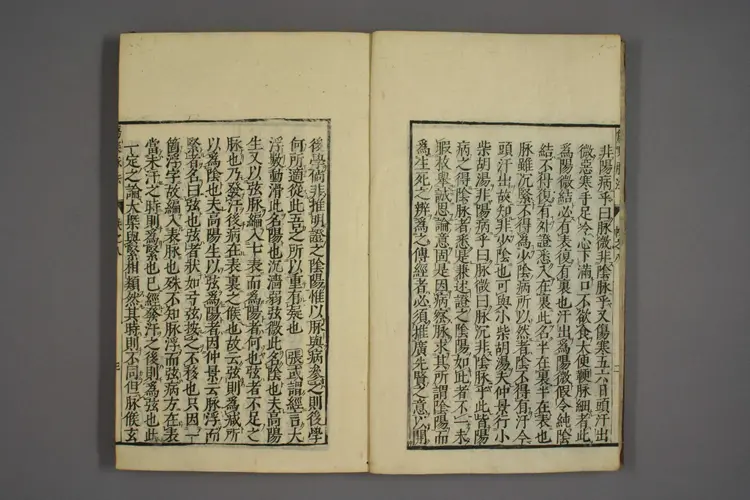 非陽病乎曰脉微非陰脉乎又傷寒五六日頭汗出
微惡寒手足冷心下滿口不欲食大便鞕脉細者此
爲陽微結必有表復有裏也汗出爲陽微假令純陰
結不得復有外證悉入在裏此名半在裏半在表也
脉雖沉緊不得爲少陰病所以然者陰不得有汗今
頭汗出故知非少陰也可與小柴胡湯夫仲景行小
柴胡湯非陽病乎曰脉微曰脉沉非陰脉乎此皆陽
病之得陰脉者悉是兼述證之陰陽如此者不一未
暇枚舉誠思論意固是因病察脉求其所謂陰陽而
爲生死之辨爲之傳經者必須推廣先賢之意以開
後學尚非推明證之陰陽惟以脉與病參之則後學
何所適從此吾之所以重有哀也 張武謂經言大
浮數動滑此名陽也沉濇弱弦微此名陰也夫高陽
生又以弦脉編入七表而爲陽者何也弦者不足之
脉也乃發汗後病在表裏之候也故云弦則爲減所
以爲陰也夫高陽生以弦爲陽者因仲景云脉浮而
緊者名曰弦也弦者狀如弓弦按之不移也只因一
箇浮字故編入表脉也殊不知脉浮而弦病方在表
當未汗之時則爲緊也已經發汗之後則爲弦也此
一定之論大槩與緊相類然其時則不同但脉候玄
卷之八